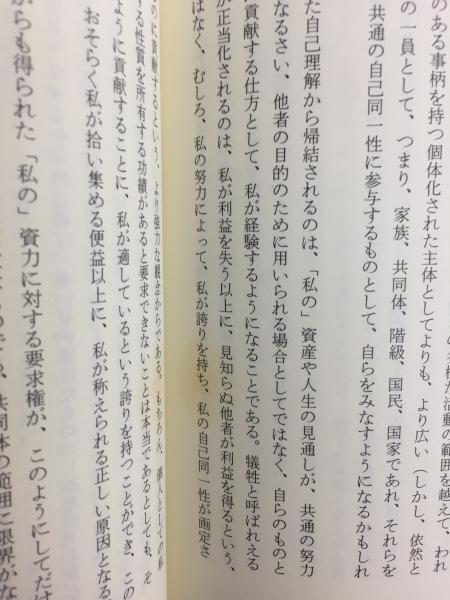 多様な活動の範囲を越えて、われ
のある事柄を持つ個体化された主体としてよりも、より広い（しかし、依然と
の一員として、つまり、家族、共同体、階級、国民、国家であれ、それらを
共通の自己同一性に参与するものとして、自らをみなすようになるかもしれ
た自己理解から帰結されるのは、「私の」資産や人生の見通しが、共通の努力
なるさい、他者の目的のために用いられる場合としてではなく、自らのものと
に貢献する仕方として、私が経験するようになることである。犠牲と呼ばれえる
が正当化されるのは、私が利益を失う以上に、見知らぬ他者が利益を得るという、
はなく、むしろ、私の努力によって、私が誇りを持ち、私の自己同一性が画定さ
のに貢献するという、より強力な観念からである。もちろん、個人としての私
する性質を所有する功績があると要求できないことは本当であるとしても、そ
ように貢献することに、私が適しているという誇りを持つことができ、この
おそらく私が拾い集める便益以上に、私が称えられる正しい原因となる
からも得られた「私の」資力に対する要求権が、このようにしてだけ
共同体の範囲に限界がな